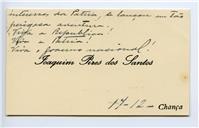 interesses da Patria, se lançou em tão
perigosa aventura.
Viva a Republica!
Viva a Patria!
Viva o governo nacional!
Joaquim Pires dos Santos
17-12- Chança